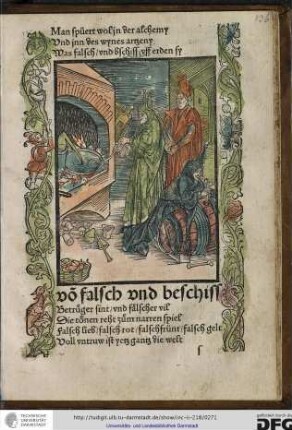 Man spüert wol jn der alchemy
Vnd jnn des wynes artzeny
Was falsch / vnd bschiss vff erden sy
vō falsch vnd beschiss
Betrüger sint / vnd fälscher vil
Die tönen reht zům narren spiel
Falsch lieb / falsch rot / falsch frünt / falsch gelt
Voll vntruw ist yetz gantz die welt
TECHNISCHE
UNIVERSITÄT
DARMSTADT
http://tudigit.ulb.tu-darmstadt.de/show/inc-ii-218/0271
Universitäts- und Landesbibliothek Darmstadt
gefördert durch die
DFG